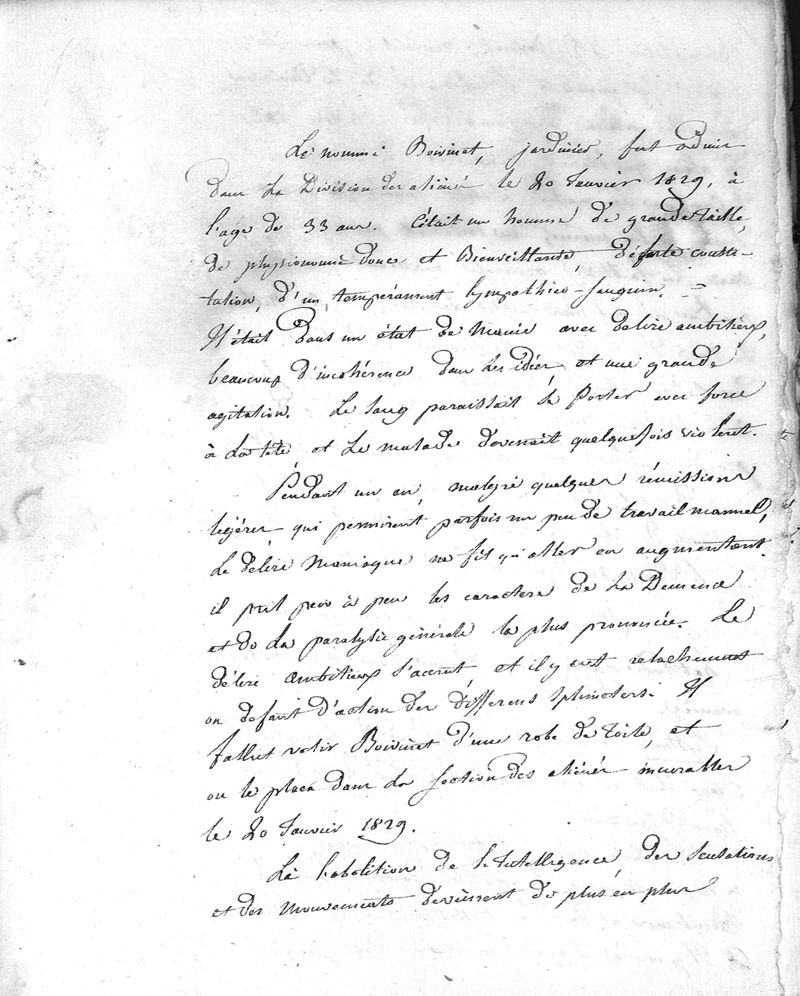 Le nommé Boivinet, jardinier, fut admis
Dans la Division des aliénés le 20 Janvier 1829, à
l'age de 33 ans. C'était un homme de grande taille,
de physionomie douce et Bienveillante, de forte consti-
tution, d'un temperament lymphatico-sanguin. =
Il était Dans un état de Manie avec delire ambitieux,
beaucoup d'incohérence dans les idées, et une grande
agitation. Le sang paraissait se Porter avec force
à la tete et le malade devenait quelquefois violent.
Pendant un an, malgré quelques rémissions
légéres qui permirent parfois un peu de travail manuel,
Le délire Maniaque ne fit qu'aller en augmentant.
il prit peu à peu les caractere de la Demence
et de La paralysie générale la plus prononcée. Le
délire ambitieux s'accrut, et il y eut relachement
ou defaut d'action des différens sphincters. Il
fallut vetir Boivinet d'une robe de toile, et
on le plaça dans la section des aliénés incurables
le 20 Janvier 1829.
Là l'abolition de l'Intelligence, des sensations
et des Mouvements devinrent de plus en plus